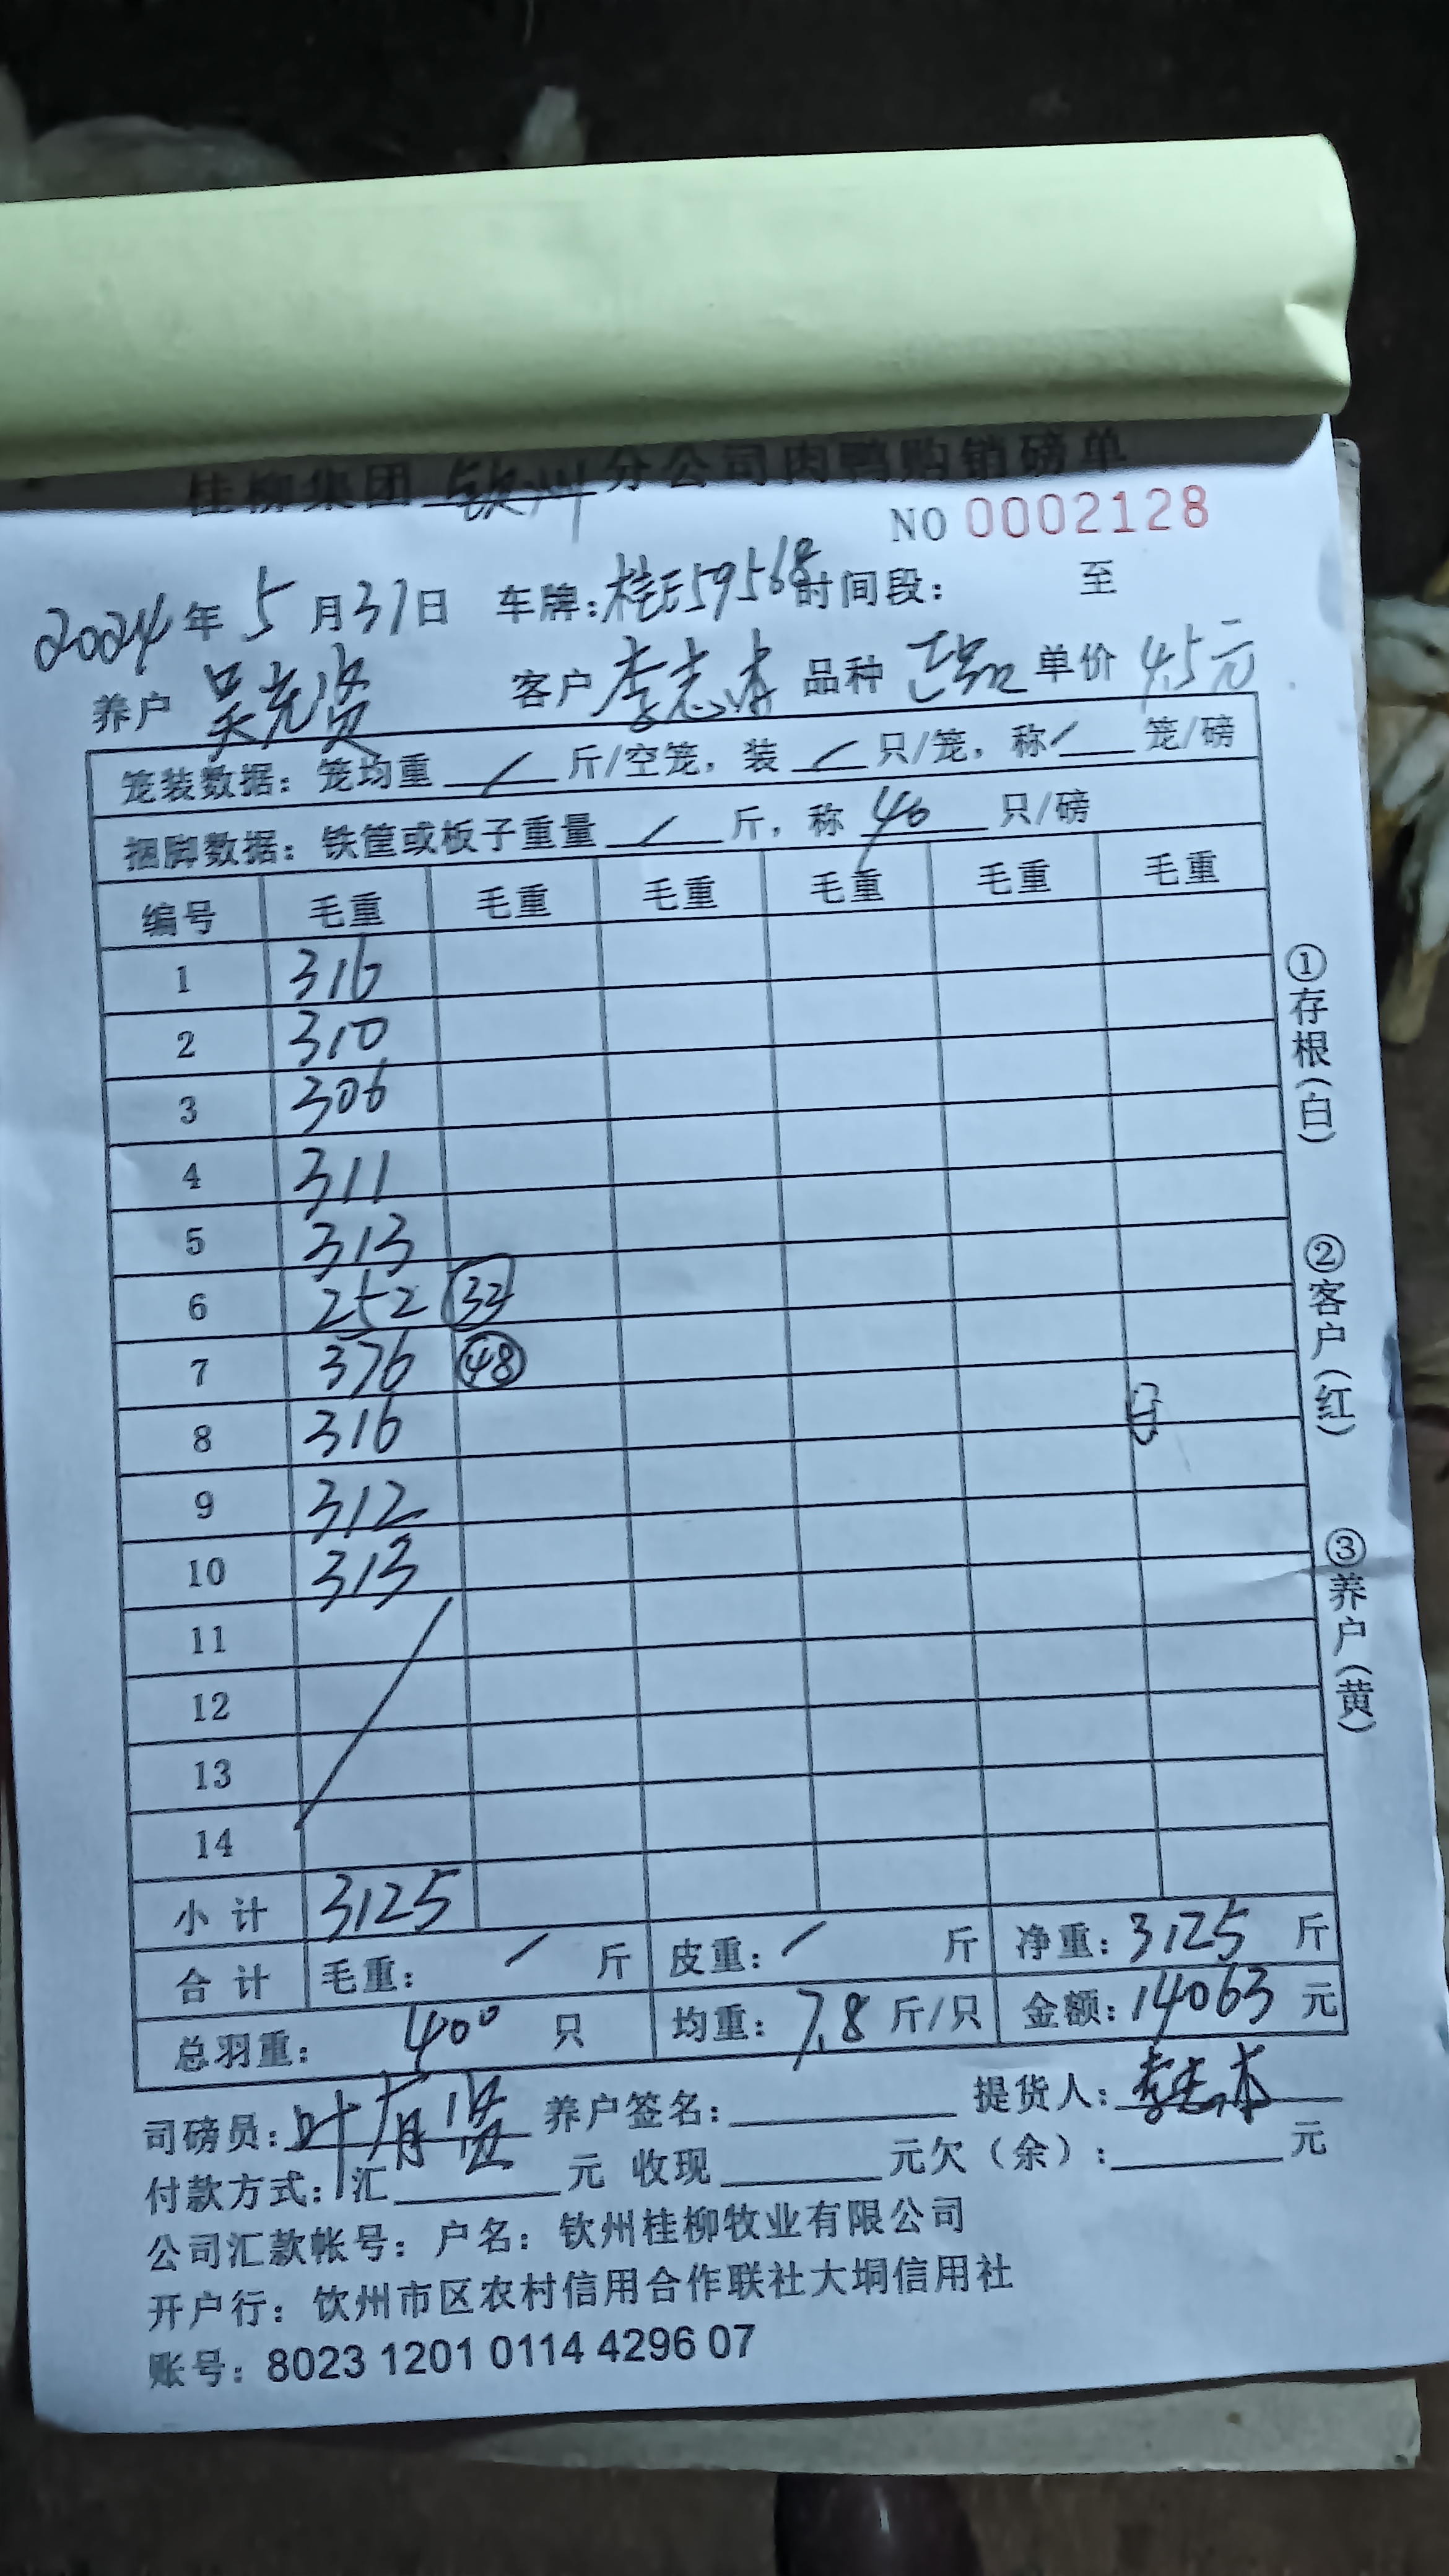 桂柳集团 钦州 分公司肉鸭购销磅单
NO 0002128
2024年 5 月 31日 车牌:桂E59568 时间段: 至
养户 吴光贤 客户 李志杰 品种 单价 4.5元
笼装数据: 笼均重 / 斤/空笼, 装 / 只/笼, 称 / 笼/磅
捆脚数据: 铁筐或板子重量 / 斤, 称 40 只/磅
编号 毛重 毛重 毛重 毛重 毛重 毛重
1 316
2 310
3 306
4 311
5 313
6 252 32
7 376 48
8 316
9 312
10 313
11
12
13
14
小计 3125
合计 毛重: / 斤 皮重: / 斤 净重: 3125 斤
总羽重: 400 只 均重: 7.8 斤/只 金额: 14063 元
司磅员: 养户签名: 提货人: 李志杰
付款方式: 汇 元 收现 元欠(余): 元
公司汇款帐号: 户名: 钦州桂柳牧业有限公司
开户行: 钦州市区农村信用合作联社大垌信用社
账号: 8023 1201 0114 4296 07
①存根(白)
②客户(红)
③养户(黄)